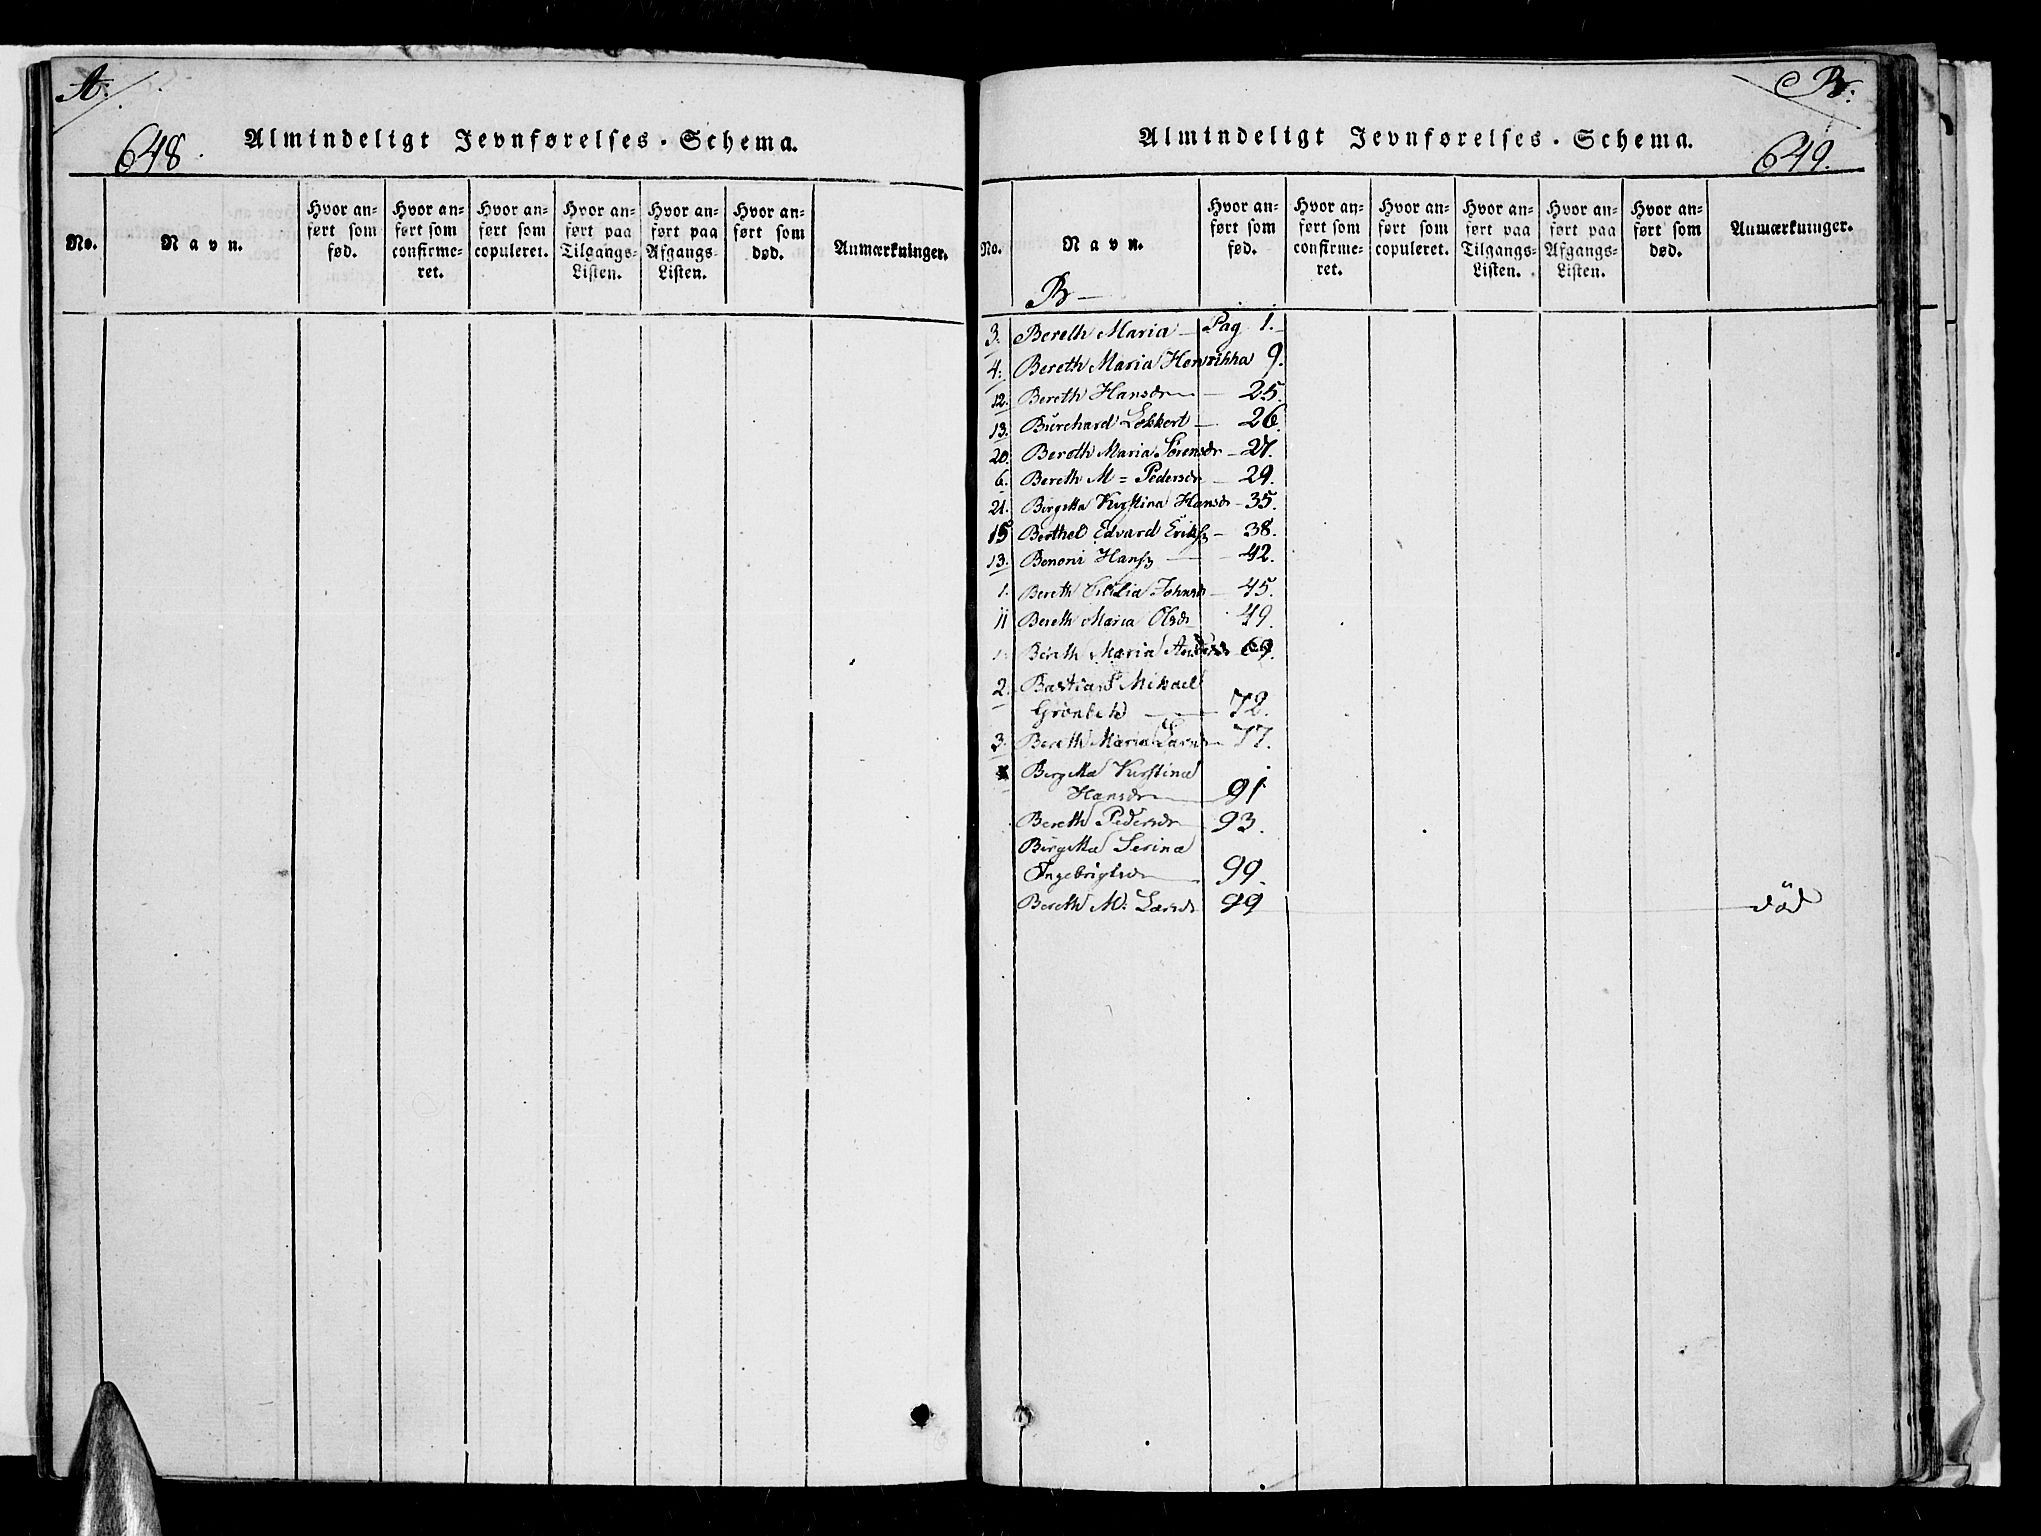 A:
648.
Almindeligt Jevnførelses-Schema.
No.
Navn.
Hvor an-
ført som
fød.
Hvor an-
ført som
confirme-
ret.
Hvor an-
ført som
copuleret.
Hvor an-
ført paa
Tilgangs-
Listen.
Hvor an-
ført paa
Afgangs-
Listen.
Hvor an-
ført som
død.
Anmærkninger.
B:
649.
Almindeligt Jevnførelses-Schema.
No.
Navn.
Hvor an-
ført som
fød.
Hvor an-
ført som
confirme-
ret.
Hvor an-
ført som
copuleret.
Hvor an-
ført paa
Tilgangs-
Listen.
Hvor an-
ført paa
Afgangs-
Listen.
Hvor an-
ført som
død.
Anmærkninger.
B —
3. Bereth Maria — Pag 1. —
4. Bereth Maria Henrikka 9.
12. Bereth Hansdr — 25.
13. Burchard Lokkert — 26.
20. Bereth Maria Sørensdr — 27.
6. Bereth M = Pedersdr — 29.
21. Birgitta Kirstina Hansdr — 35.
15 Berthel Edvard Eriks — 38.
13. Benoni Hans — 42.
1. Bereth Cicilia Johnsdr — 45.
11 Bereth Maria Olsdr 49.
1. Bereth Maria Andersdr 69.
2. Bastian Mikael
Grønbek — 72.
3. Bereth Maria Larsdr 77.
Birgitta Kirstina
Hansdr — 91
Bereth Pedersdr 93.
Birgitta Serina
Ingebrigtsdr — 99.
Bereth M: Larsdr 99 — död